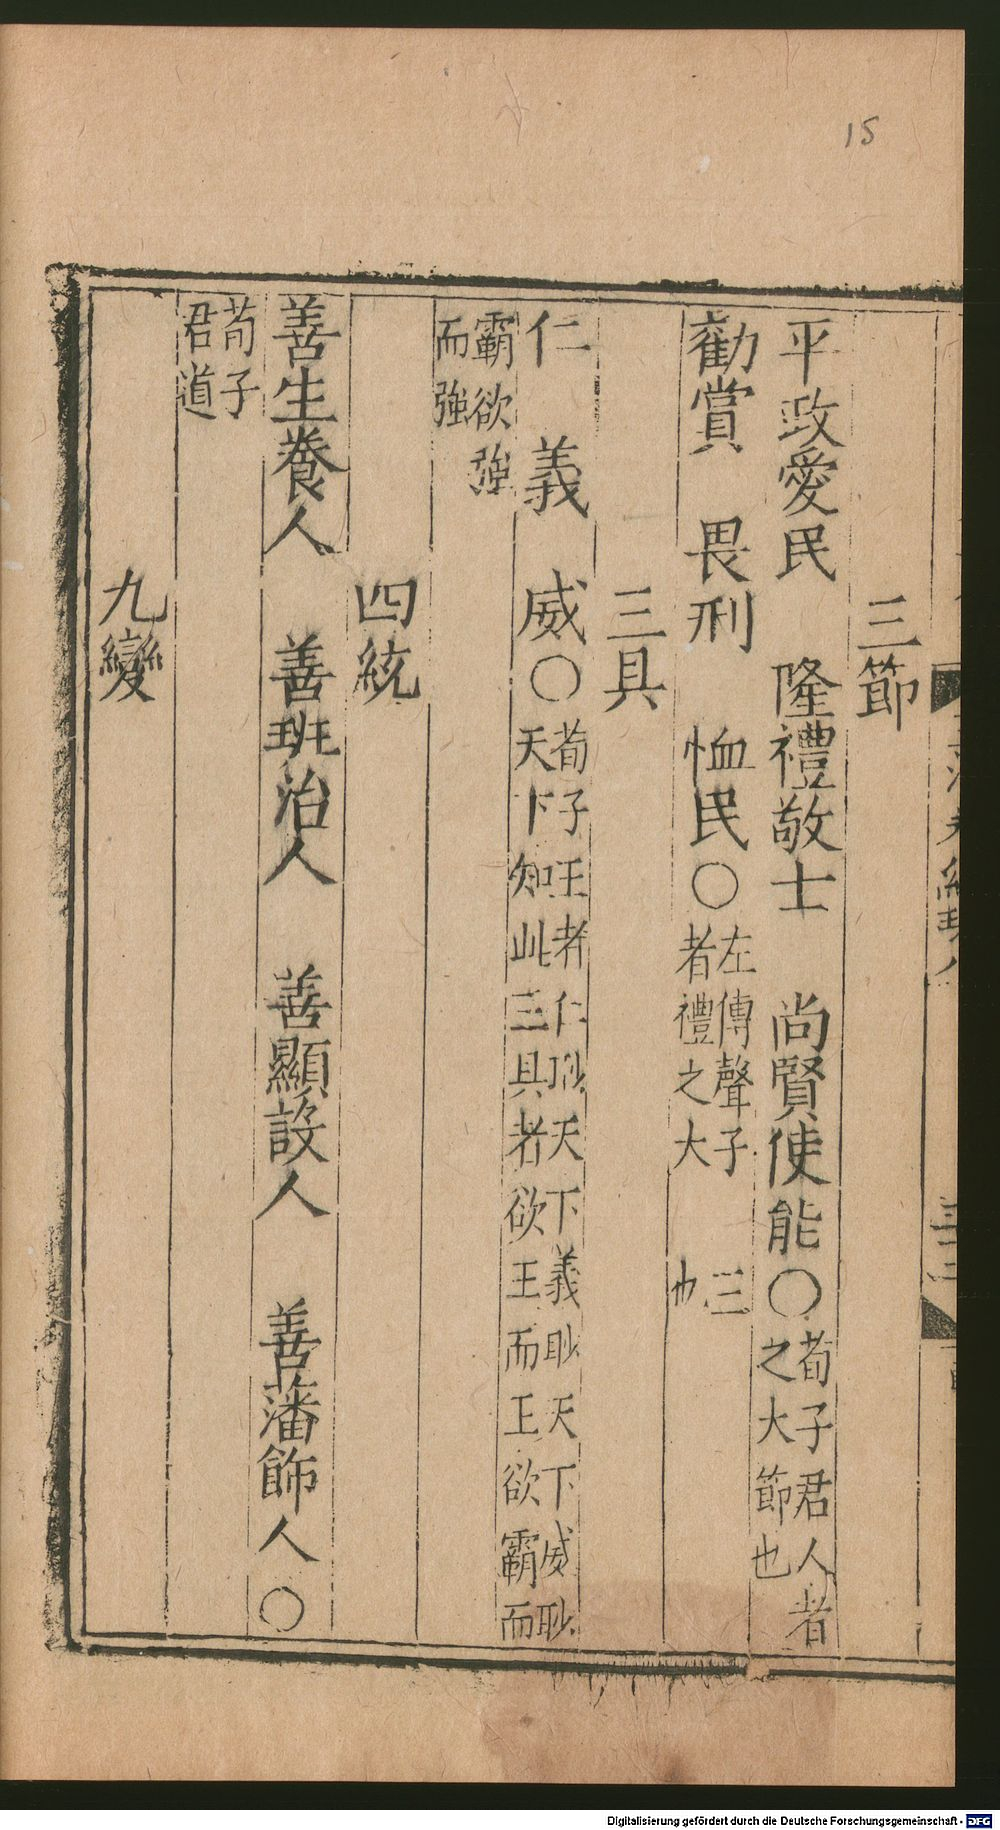 15
三節
平政愛民 隆禮敬士 尚賢使能○荀子君人者
之大節也
勸賞 畏刑 恤民○左傳聲子 三
者禮之大 也
三具
仁 義 威○荀子王者仁眇天下義眇天下威眇
天下知此三具者欲王而王欲霸而
霸欲強
而強
四統
善生養人 善班治人 善顯設人 善藩飾人○
荀子
君道
九變
Digitalisierung gefördert durch die Deutsche Forschungsgemeinschaft - DFG